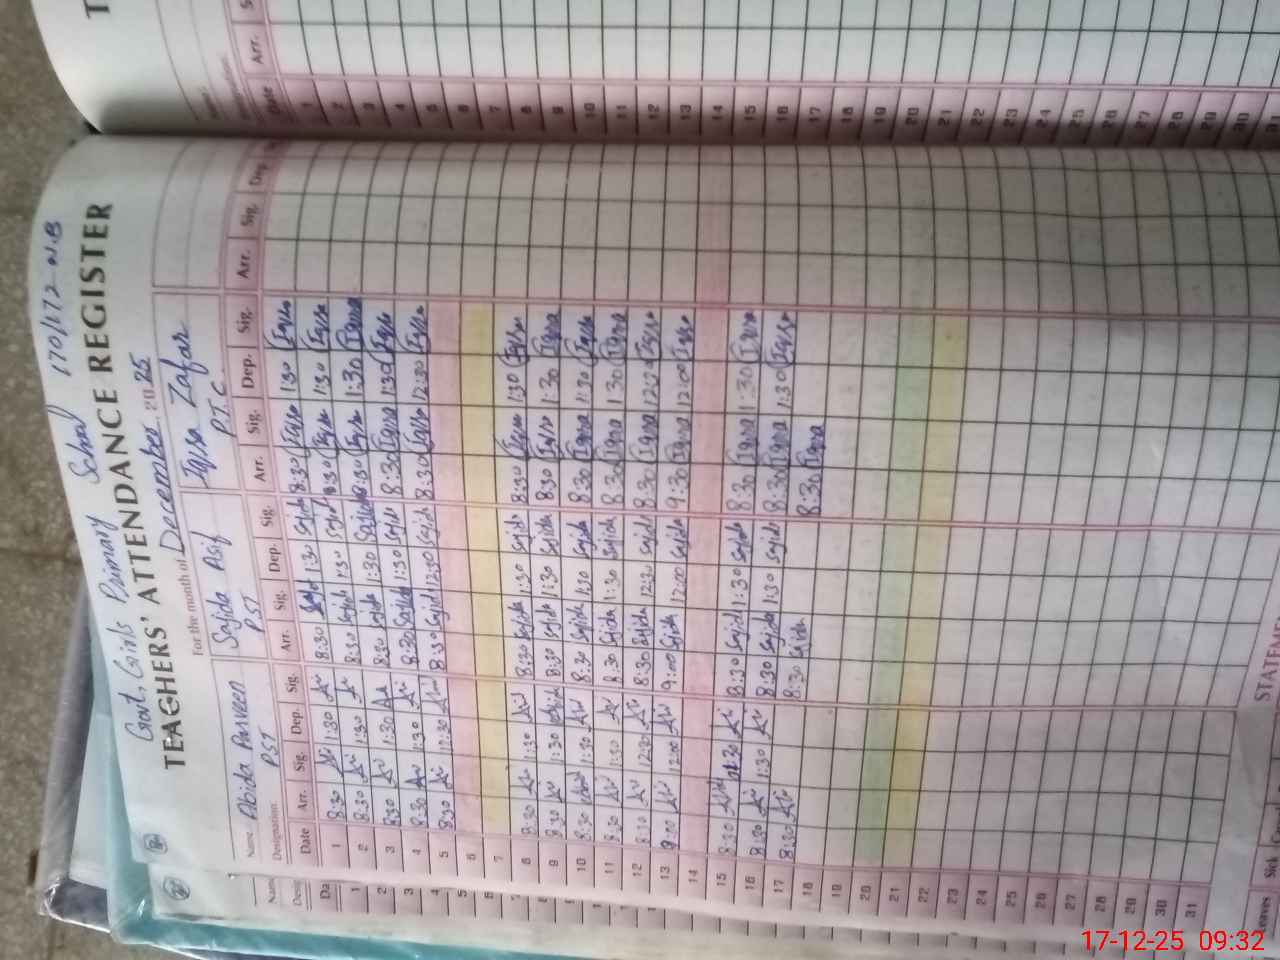 Govt. Girls Primary School 170/172-N.B
TEACHERS' ATTENDANCE REGISTER
For the month of December 2025
Name Abida Parveen Sajida Asif Iqra Zafar
Designation PST PST P.T.C
Date Arr. Sig. Dep. Sig. Arr. Sig. Dep. Sig. Arr. Sig. Dep. Sig. Arr. Sig. Dep.
1 8:30 1:30 8:30 Sajida 1:30 Sajida 8:30 Iqra 1:30 Iqra
2 8:30 1:30 8:30 Sajida 1:30 Sajida 8:30 Iqra 1:30 Iqra
3 8:30 1:30 8:30 Sajida 1:30 Sajida 8:30 Iqra 1:30 Iqra
4 8:30 1:30 8:30 Sajida 1:30 Sajida 8:30 Iqra 1:30 Iqra
5 8:30 12:30 8:30 Sajida 12:30 Sajida 8:30 Iqra 12:30 Iqra
6
7
8 8:30 1:30 8:30 Sajida 1:30 Sajida 8:30 Iqra 1:30 Iqra
9 8:30 1:30 8:30 Sajida 1:30 Sajida 8:30 Iqra 1:30 Iqra
10 8:30 1:30 8:30 Sajida 1:30 Sajida 8:30 Iqra 1:30 Iqra
11 8:30 1:30 8:30 Sajida 1:30 Sajida 8:30 Iqra 1:30 Iqra
12 8:30 12:30 8:30 Sajida 12:30 Sajida 8:30 Iqra 12:30 Iqra
13 9:00 12:00 9:00 Sajida 12:00 Sajida 9:30 Iqra 12:00 Iqra
14
15 8:30 8:30 Sajida 1:30 Sajida 8:30 Iqra 1:30 Iqra
16 8:30 1:30 8:30 Sajida 1:30 Sajida 8:30 Iqra 1:30 Iqra
17 8:30 8:30 Sajida 8:30 Iqra
18
19
20
21
22
23
24
25
26
27
28
29
30
31
Leaves Sick
17-12-25 09:32